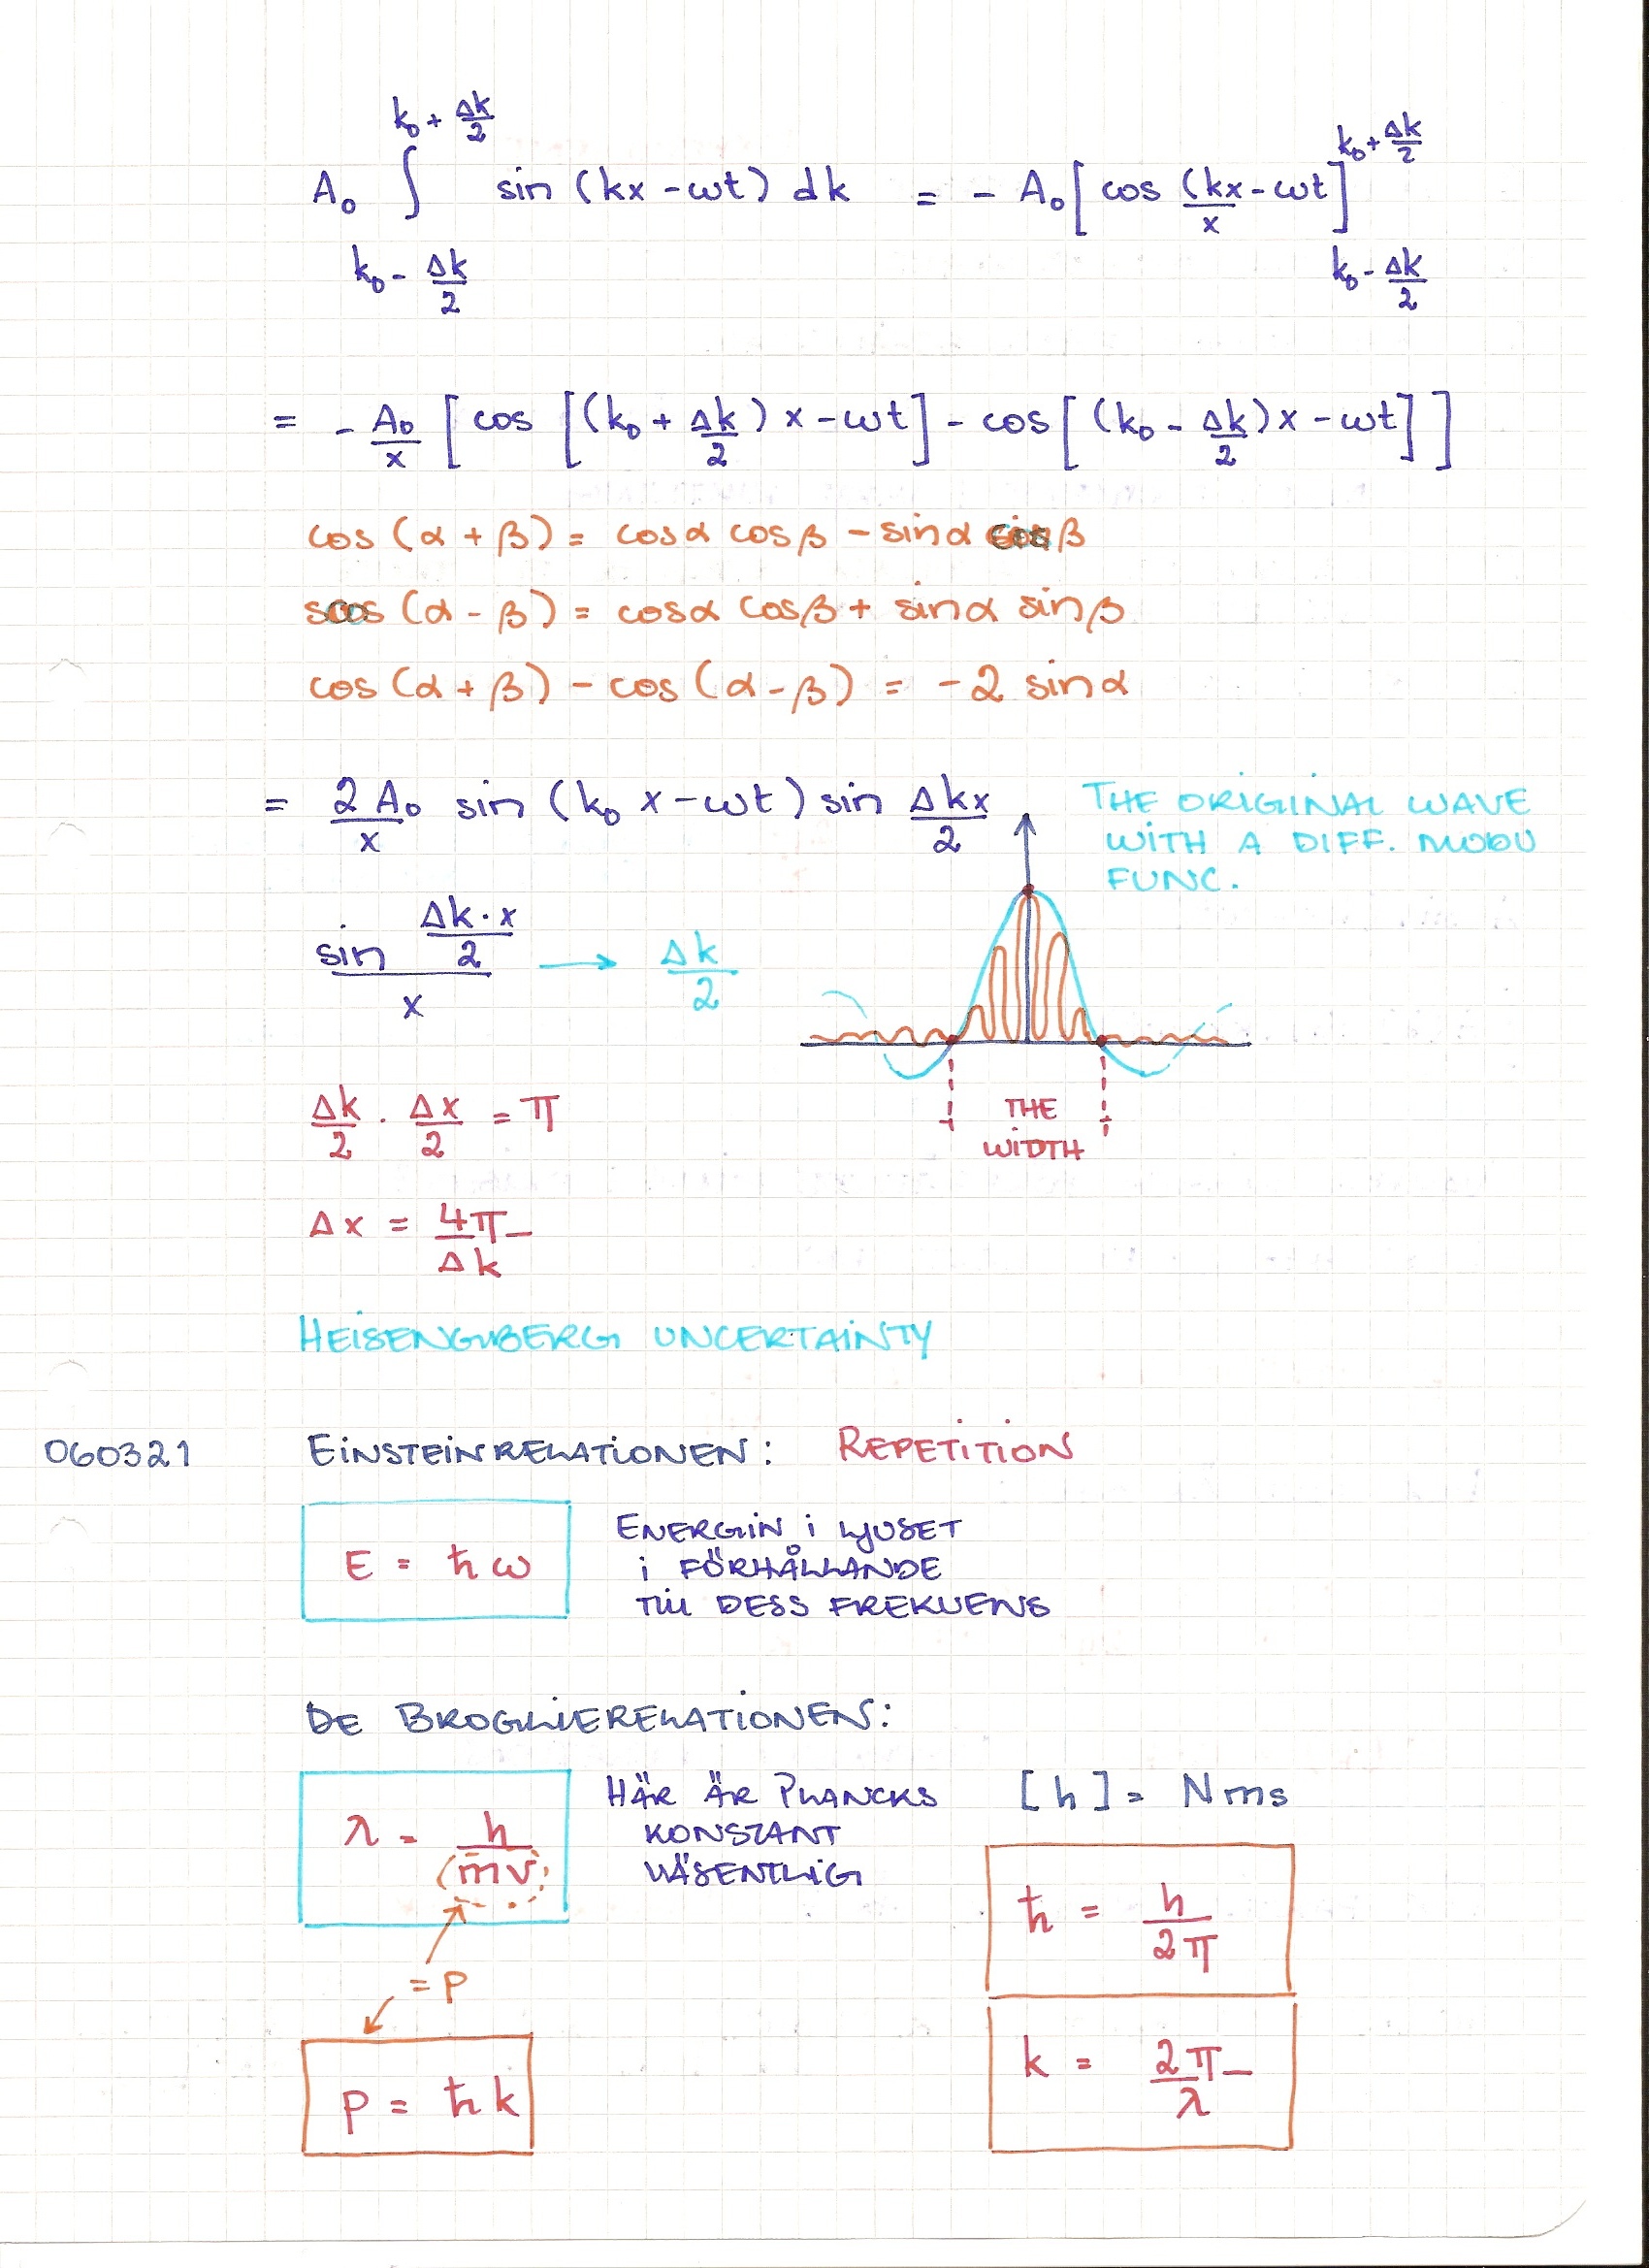 A₀ ∫_{k₀ - Δk/2}^{k₀ + Δk/2} sin (kx - ωt) dk = - A₀ [ cos (kx - ωt / x ]_{k₀ - Δk/2}^{k₀ + Δk/2}
= - A₀/x [ cos [(k₀ + Δk/2) x - ωt] - cos [(k₀ - Δk/2) x - ωt] ]
cos (α + β) = cosα cosβ - sinα sinβ
cos (α - β) = cosα cosβ + sinα sinβ
cos (α + β) - cos (α - β) = -2 sinα
= 2A₀/x sin (k₀ x - ωt) sin Δkx/2
THE ORIGINAL WAVE
WITH A DIFF. MODU
FUNC.
sin (Δk·x/2) / x → Δk/2
Δk/2 · Δx/2 = π
THE
WIDTH
Δx = 4π/Δk
HEISENGBERG UNCERTAINTY
060321 EINSTEINRELATIONEN: REPETITION
E = ħω
ENERGIIN I LJUSET
I FÖRHÅLLANDE
TILL DESS FREKVENS
DE BROGLIERELATIONEN:
λ = h/(mv)
HÄR ÄR PLANCKS
KONSTANT
VÄSENTLIG
[h] = Nms
= P
ħ = h/2π
P = ħk
k = 2π/λ